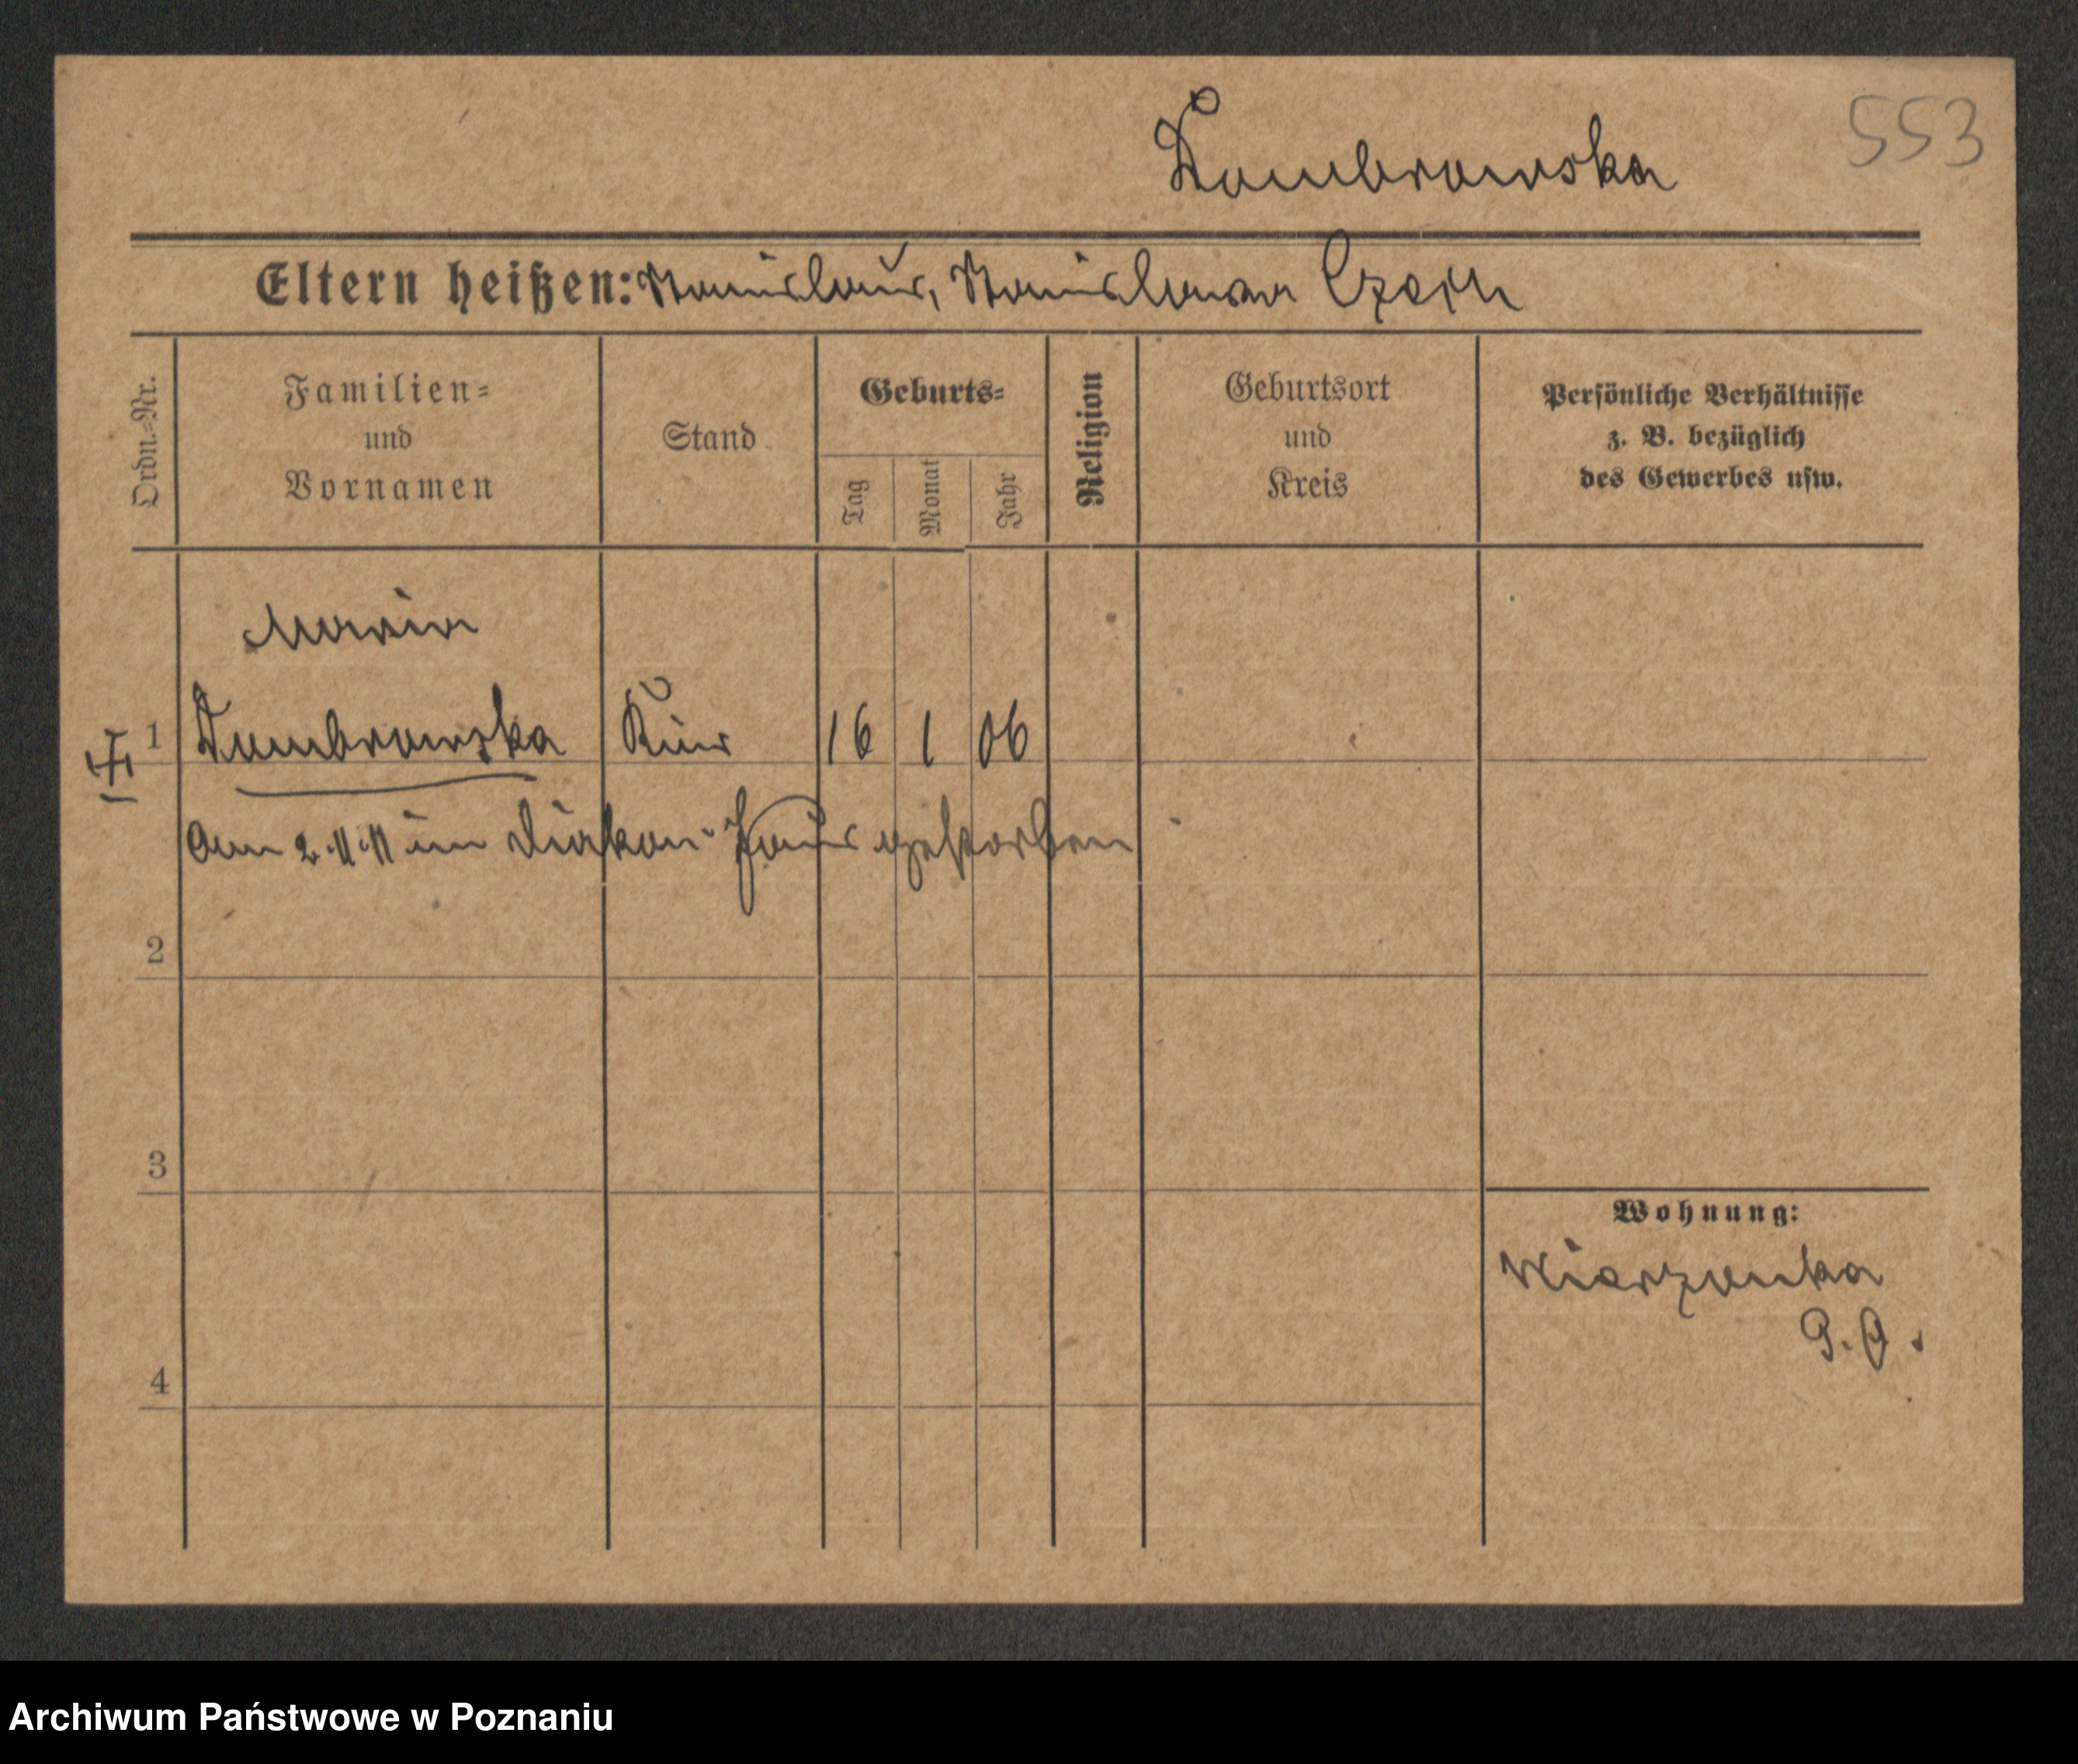 553
Dombrowska
Eltern heißen: Stanislaus, Stanislawa Czech
Ordn.-Nr.
Familien-
und
Vornamen
Stand
Geburts-
Tag
Monat
Jahr
Religion
Geburtsort
und
Kreis
Persönliche Verhältnisse
z. B. bezüglich
des Gewerbes usw.
Maria
1 Dombrowska 16 1 06
am 2.11.11 im Diakon. Haus gestorben
2
3
Wohnung:
Wierzonka
4
Archiwum Państwowe w Poznaniu